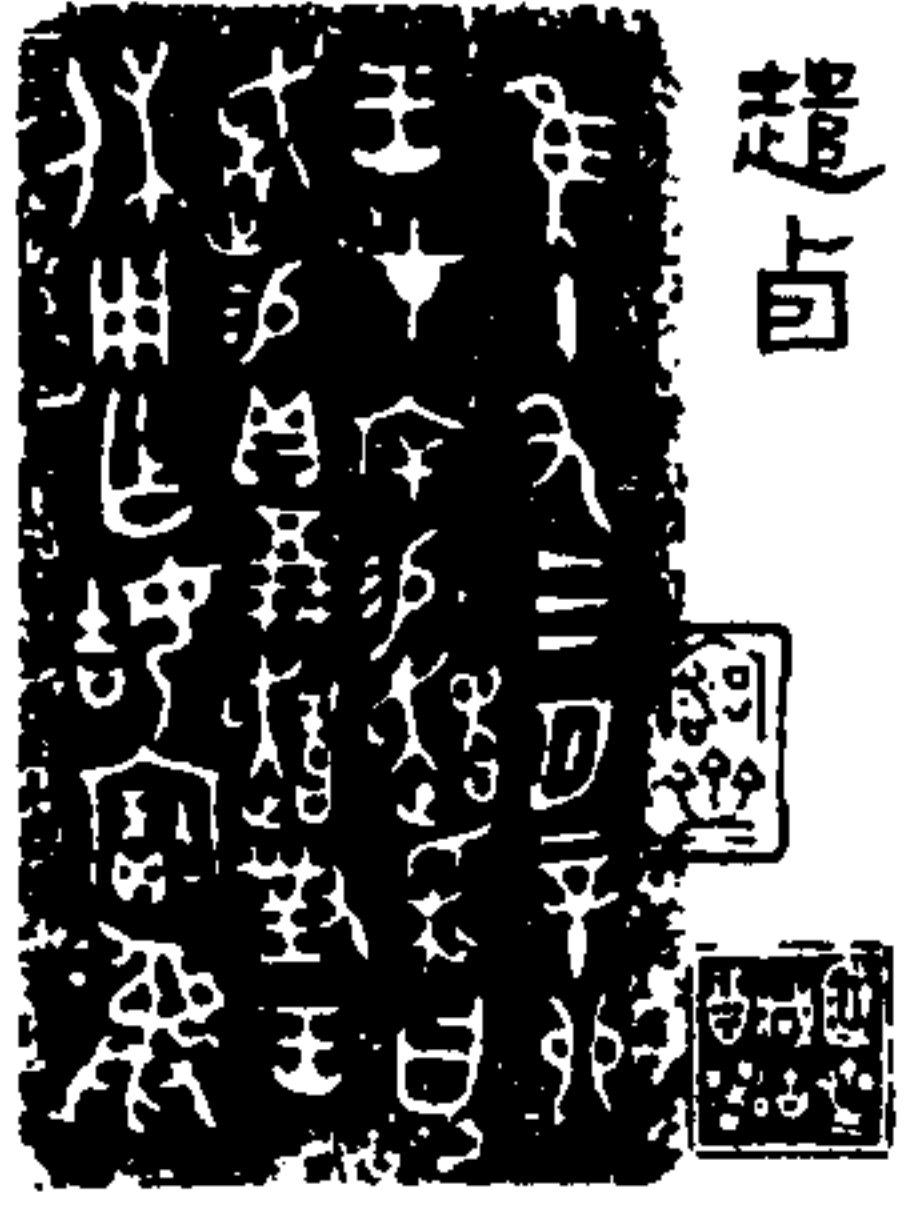 趞卣
隹十又三月辛卯
王才厈易趞采曰
𧻚易貝五朋趞對王
休用乍姞寶彝